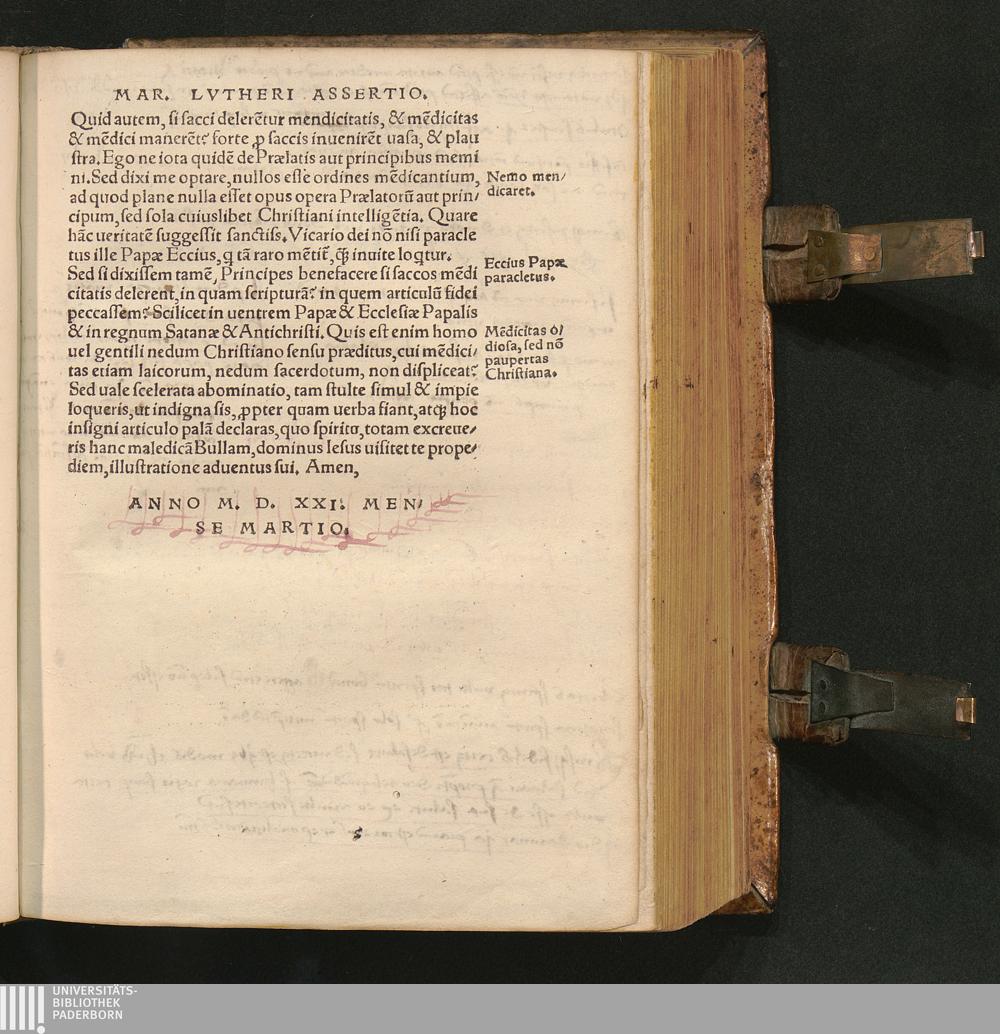 MAR. LVTHERI ASSERTIO.
Quid autem, si sacci delerẽtur mendicitatis, & mẽdicitas
& mẽdici manerẽt? forte ꝓ saccis inuenirẽt uasa, & plau
stra. Ego ne iota quidẽ de Prælatis aut principibus memi
ni. Sed dixi me optare, nullos esse ordines mẽdicantium,
ad quod plane nulla esset opus opera Prælatorũ aut prin/
cipum, sed sola cuiuslibet Christiani intelligẽtia. Quare
hãc ueritatẽ suggessit sanctiss. Vicario dei nõ nisi paracle
tus ille Papæ Eccius, q tã raro mẽtit̃, q̃ inuite loqtur.
Sed si dixissem tamẽ, Principes benefacere si saccos mẽdi
citatis delerent, in quam scripturã? in quem articulũ fidei
peccassem? Scilicet in uentrem Papæ & Ecclesiæ Papalis
& in regnum Satanæ & Antichristi. Quis est enim homo
uel gentili nedum Christiano sensu præditus, cui mẽdici/
tas etiam laicorum, nedum sacerdotum, non displiceat?
Sed uale scelerata abominatio, tam stulte simul & impie
loqueris, ut indigna sis, ꝓpter quam uerba fiant, atq; hoc
insigni articulo palã declaras, quo spiritu, totam excreue/
ris hanc maledicã Bullam, dominus Iesus uisitet te prope/
diem, illustratione aduentus sui. Amen,
ANNO M. D. XXI. MEN/
SE MARTIO.
Nemo men/
dicaret.
Eccius Papæ
paracletus.
Mẽdicitas o/
diosa, sed nõ
paupertas
Christiana.
UNIVERSITÄTS-
BIBLIOTHEK
PADERBORN